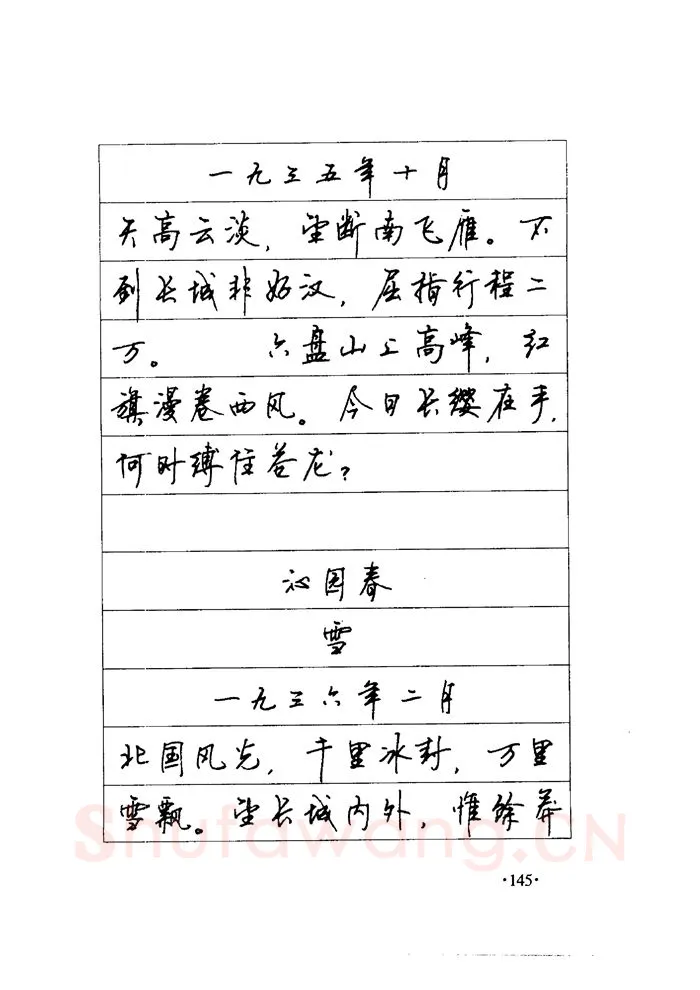 一九三五年十月
天高云淡，望断南飞雁。不
到长城非好汉，屈指行程二
万。 六盘山上高峰，红
旗漫卷西风。今日长缨在手，
何时缚住苍龙？
沁园春
雪
一九三六年二月
北国风光，千里冰封，万里
雪飘。望长城内外，惟馀莽
Shufawang.CN
·145·